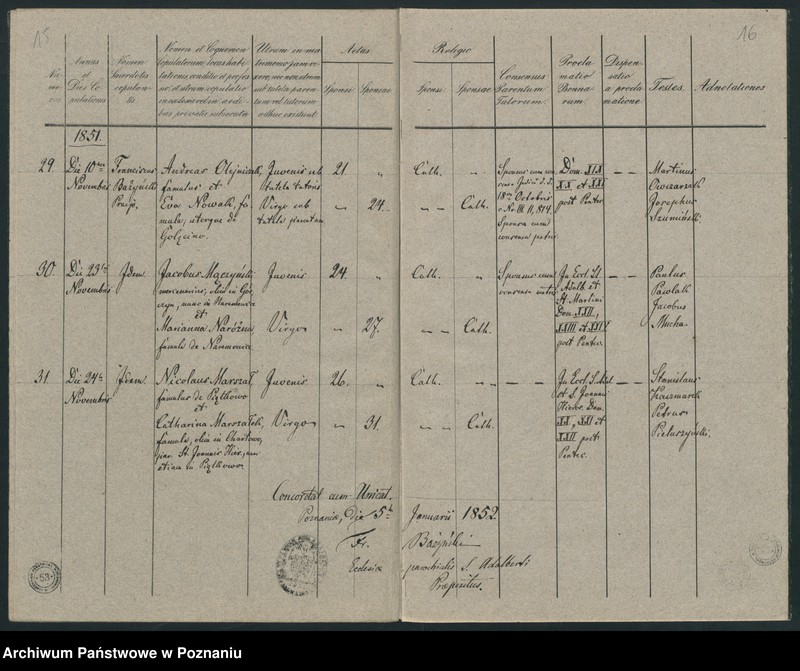 15
16
Nu-
me-
rus
Annus
et
Dies Co-
pulationis
Nomen
Sacerdotis
copulan-
tis
Nomen et Cognomen
copulatorum, locus habi-
tationis, conditio et profes-
sio, et utrum copulatio
in aedibus
privatis
Utrum in ma-
trimonio jam
an
sub tutela paren-
tum vel tutorum
adhuc existunt
Aetas
Sponsi
Sponsae
Religio
Sponsi
Sponsae
Consensus
Parentum
Tutorum.
Procla
matio
Banno-
rum.
Dispen-
satio
a procla
matione
Testes.
Adnotationes
1851.
29. Die 10
Novembris
Franciscus
Bażyński
Andreas Olejniczak,
famulus et
Eva Nowak, fa
mula, uterque de
Golęcino.
Juvenis sub
tutela tutoris
Virgo sub
tutela parentum
21. "
" 24.
Cath. "
" " Cath.
Sponsus cum con-
Octobris
Sponsa cum
consensu patris.
Dom. XIX
XX et XXI
post Pentec.
— —
Martinus
Owczarzak
Josephus
Szumiński
30. Die 23
Novembris
Idem
Jacobus Mączyński
mercenarius, olim in
nunc in Naramowice
et
Marianna
famula de Naramowice
Juvenis
Virgo
24 "
" 27.
Cath. "
" " Cath.
Sponsus cum
consensu
In Eccl. St.
Adalb. et
St. Martini
Dom. XXII,
XXIII et XXIV
post Pentec.
— —
Paulus
Pawlak
Jacobus
Mucha
31. Die 24
Novembris
Idem
Nicolaus Marszał
famulus de Piątkowo
et
Catharina Marszałek,
famula, olim in Chartowo,
par. St. Joannis Hier., nunc
etiam in Piątkowo
Juvenis
Virgo
26. "
" 31.
Cath. "
" " Cath.
— —
In Eccl. S. Adal
et S. Joannis
Hieros. Dom.
XX, XXI et
XXII post
Pentec.
— —
Stanislaus
Kaczmarek
Petrus
Pieluszyński.
Concordat cum Unicat.
Poznaniae, die 5 Januarii 1852.
Fr. Bażyński
Ecclesiae parochialis S. Adalberti
Praepositus.
53
Archiwum Państwowe w Poznaniu